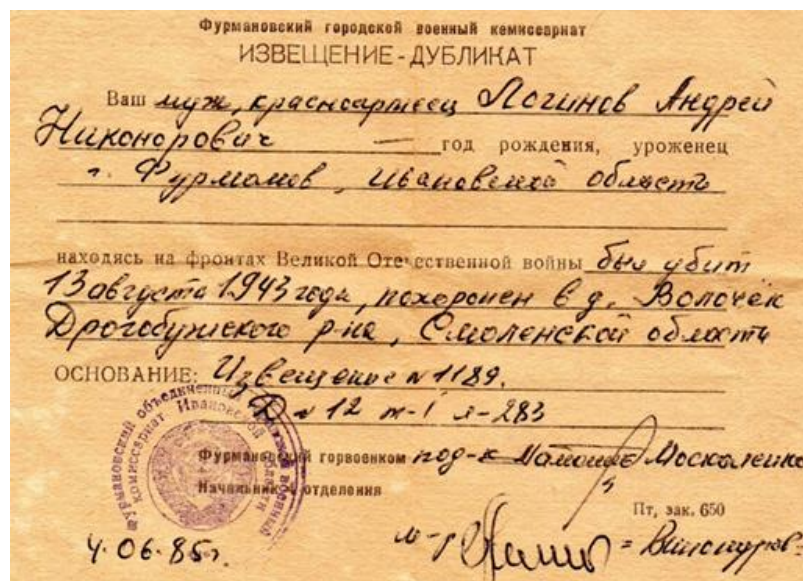 Фурмановский городской военный комиссариат
ИЗВЕЩЕНИЕ-ДУБЛИКАТ
Ваш муж, красноармеец Логинов Андрей
Никонорович — год рождения, уроженец
г. Фурманов, Ивановской области
находясь на фронтах Великой Отечественной войны был убит
13 августа 1943 года, похоронен в д. Волочёк
Дрогобужского р-на, Смоленской области
ОСНОВАНИЕ: Извещение № 1189.
Д № 12 т-1 л-283
Фурмановский объединенный военный
комиссариат Ивановской области
Фурмановский горвоенком под-к Москаленко
Начальник отделения
Пт, зак. 650
м-р = Винокуров =
4.06.85г.